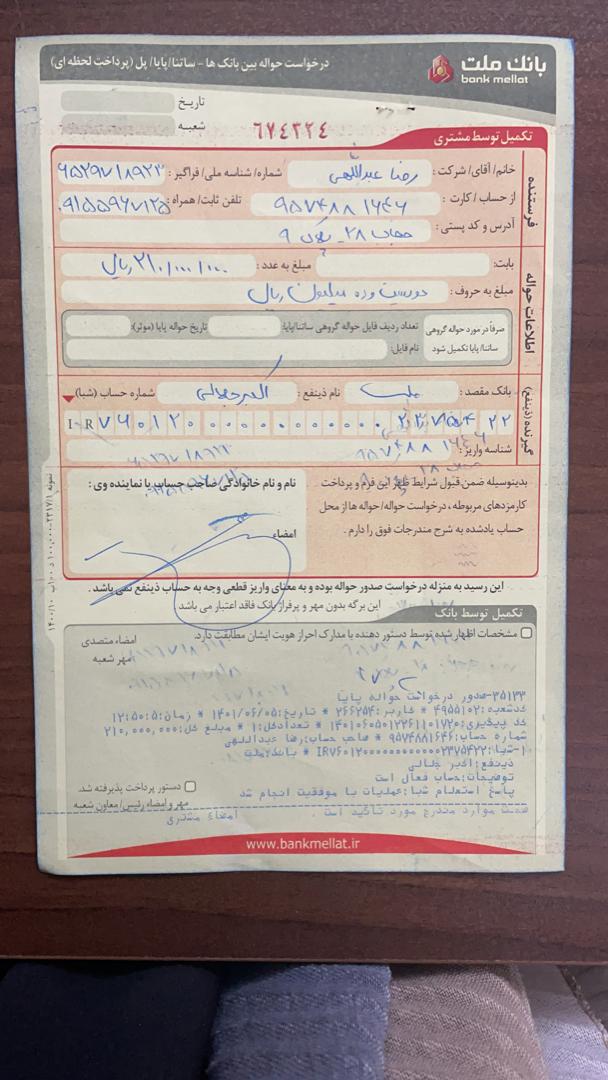 بانک ملت
bank mellat
درخواست حواله بین بانک ها - ساتنا/پایا/ پل (پرداخت لحظه ای)
تاریخ
شعبه
۶۷۴۳۲۴
تکمیل توسط مشتری
فرستنده
خانم/ آقای/ شرکت: رضا عبداللهی شماره/ شناسه ملی/ فراگیر: ۶۵۲۹۷۱۸۹۲۳
از حساب/ کارت: ۹۵۷۴۸۸۱۶۴۶ تلفن ثابت/ همراه: ۰۹۱۵۵۹۶۷۱۲۵
آدرس و کد پستی: ۲۸ - پلاک ۹
اطلاعات حواله
بابت: مبلغ به عدد: ۲۱۰/۰۰۰/۰۰۰ ریال
مبلغ به حروف: دویست و ده میلیون ریال
صرفاً در مورد حواله گروهی ساتنا/ پایا تکمیل شود
تعداد ردیف فایل حواله گروهی ساتنا/پایا: تاریخ حواله پایا (موثر):
نام فایل:
گیرنده (ذینفع)
بانک مقصد: ملت نام ذینفع: اکبر جلالی شماره حساب (شبا)
I R ۷۶۰۱۲۰۰۰۰۰۰۰۰۰۰۰۰۲۳۷۵۴۲۲
شناسه واریز:
بدینوسیله ضمن قبول شرایط ظهر این فرم و پرداخت
کارمزدهای مربوطه، درخواست حواله/ حواله ها از محل
حساب یادشده به شرح مندرجات فوق را دارم.
نام و نام خانوادگی صاحب حساب یا نماینده وی:
امضاء
این رسید به منزله درخواست صدور حواله بوده و به معنای واریز قطعی وجه به حساب ذینفع نمی باشد.
این برگه بدون مهر و پرفراژ بانک فاقد اعتبار می باشد
تکمیل توسط بانک
مشخصات اظهار شده توسط دستور دهنده با مدارک احراز هویت ایشان مطابقت دارد.
امضاء متصدی
مهر شعبه
۳۵۱۳۳-صدور درخواست حواله پایا
کدشعبه:۴۹۵۵۱۰۲ * کاربر:۲۶۶۲۵۴ * تاریخ:۱۴۰۱/۰۶/۰۵ * زمان:۱۲:۵۰:۰۵
کد پیگیری:۱۴۰۱۰۶۰۵۰۱۲۲۶۱۱۰۱۷۲۰ * تعدادکل:۱ * مبلغ کل:۲۱۰,۰۰۰,۰۰۰
شماره حساب:۹۵۷۴۸۸۱۶۴۶ * صاحب حساب:رضا عبداللهی
۱-شبا:IRV۶۰۱۲۰۰۰۰۰۰۰۰۰۰۰۰۲۳۷۵۴۲۲ * بانک:ملت
ذینفع:اکبر جلالی
توضیحات:حساب فعال است
پاسخ استعلام شبا:عملیات با موفقیت انجام شد
دستور پرداخت پذیرفته شد.
مهر و امضاء رئیس/ معاون شعبه
موارد مندرج مورد تائید است . امضاء مشتری
www.bankmellat.ir